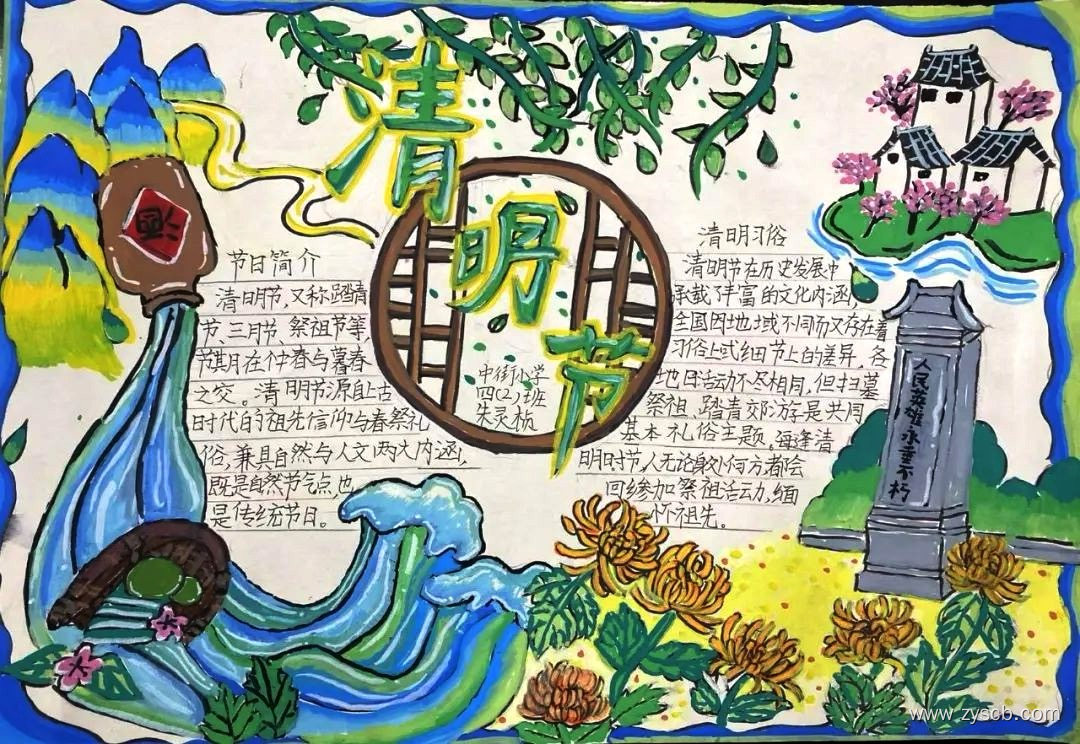 清
明
节
节日简介
清明节,又称踏青
节、三月节、祭祖节等,
节期在仲春与暮春
之交。清明节源自上古
时代的祖先信仰与春祭礼
俗,兼具自然与人文两大内涵,
既是自然节气点,也
是传统节日。
中街小学
四(2)班
朱灵桢
清明习俗
清明节在历史发展中
承载了丰富的文化内涵,
全国因地域不同而又存在着
习俗上或细节上的差异,各
地日活动不尽相同,但扫墓
祭祖、踏青郊游是共同
基本礼俗主题,每逢清
明时节,人无论身处何方都会
回乡参加祭祖活动,缅
怀祖先。
人民英雄永垂不朽
www.zyscb.com